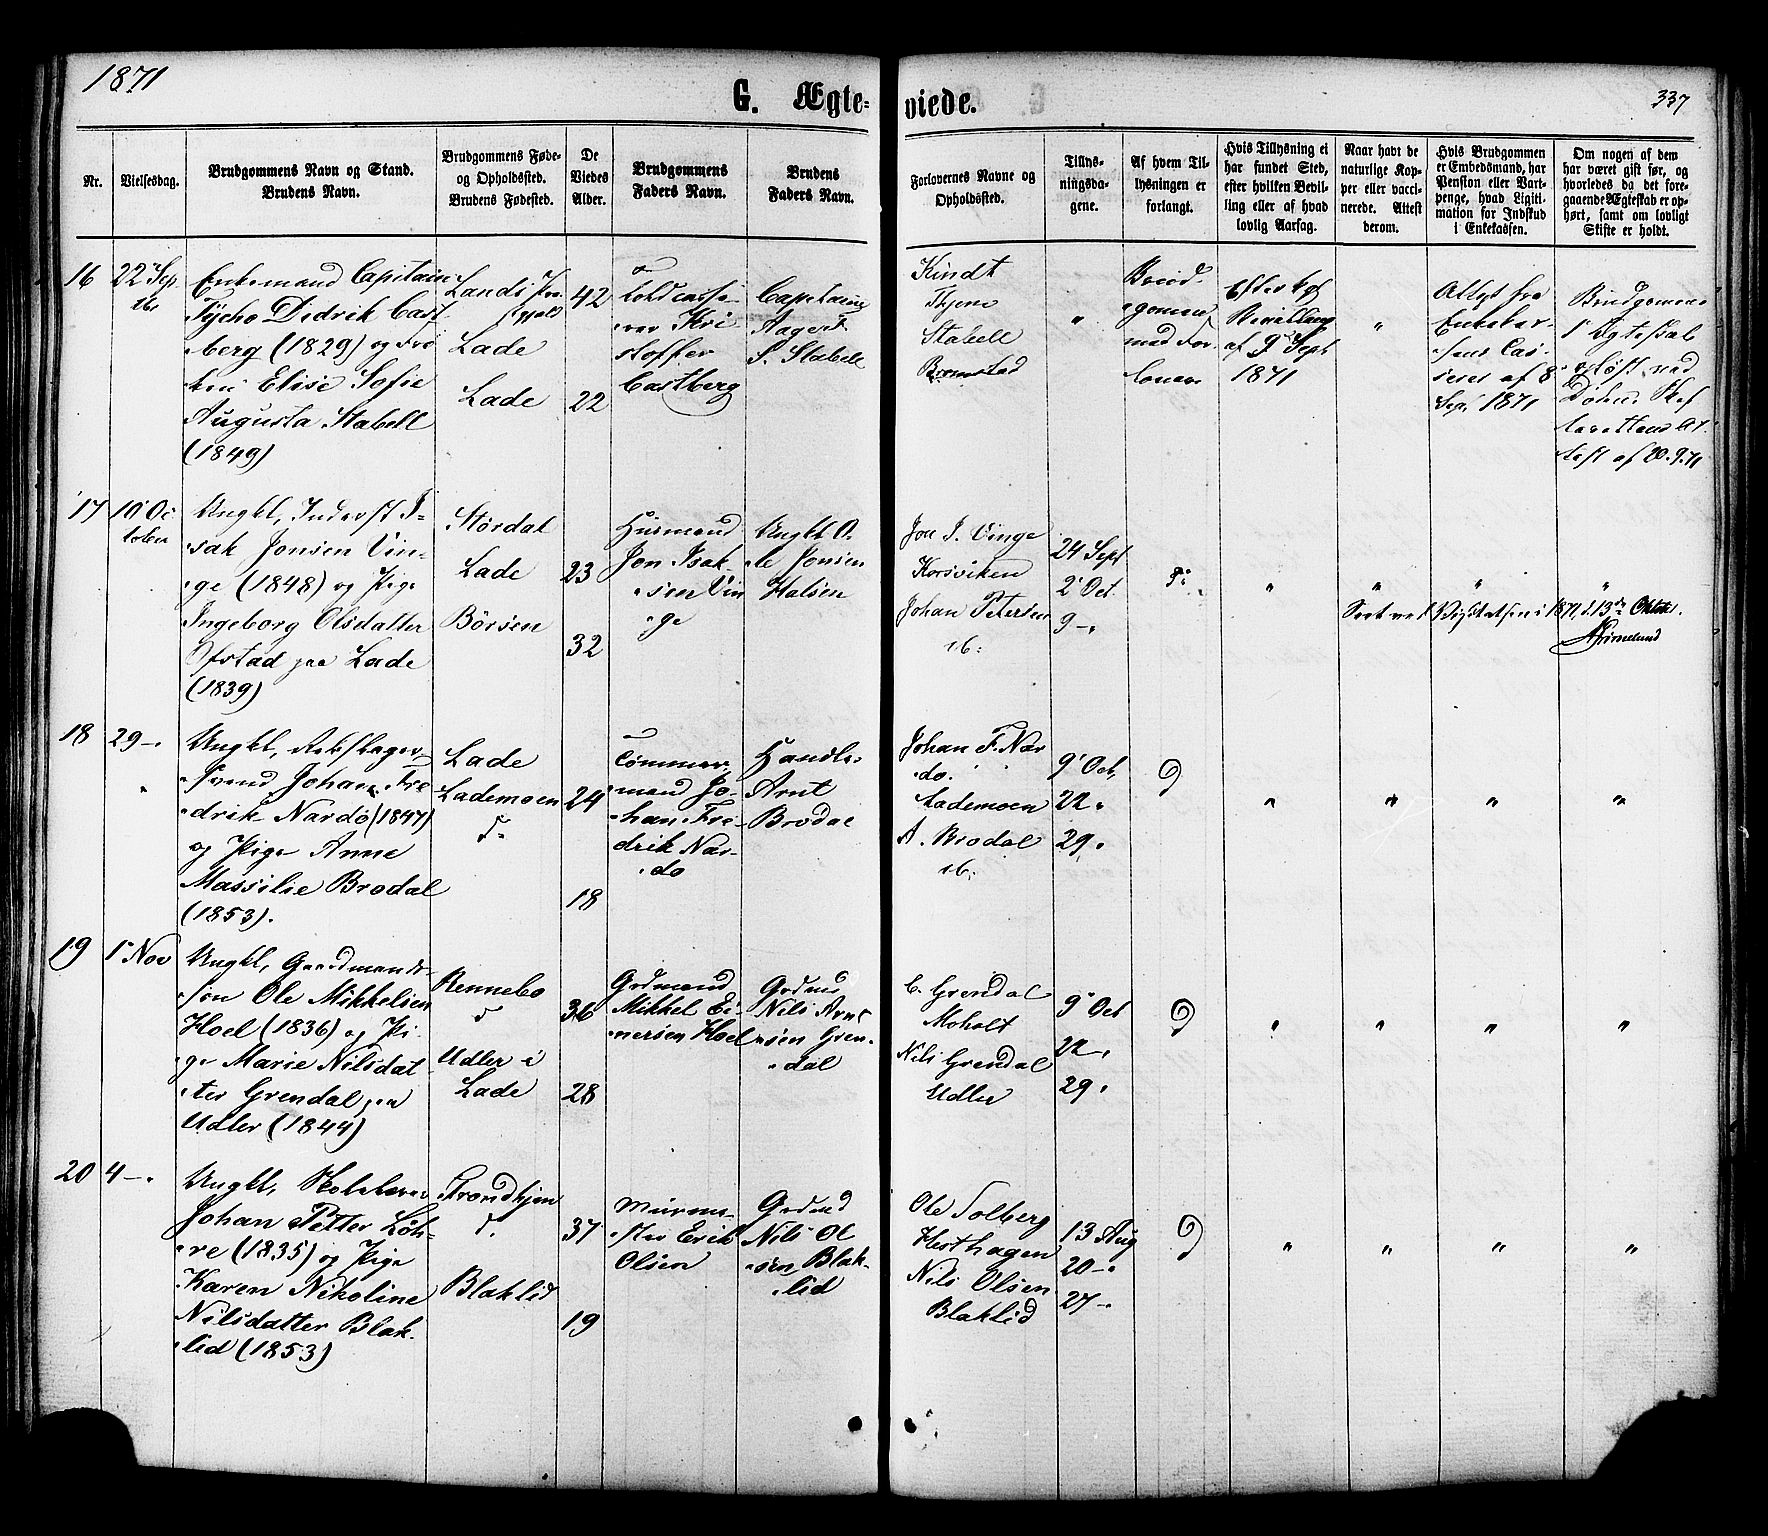 1871
G. Ægte-
viede.
337
Nr.
Vielsesdag.
Brudgommens Navn og Stand.
Brudens Navn.
Brudgommens Føde-
og Opholdssted.
Brudens Fødested.
De
Viedes
Alder.
Brudgommens
Faders Navn.
Brudens
Faders Navn.
Forlovernes Navne og
Opholdssted.
Tillys-
ningsda-
gene.
Af hvem Til-
lysningen er
forlangt.
Hvis Tillysning ei
har fundet Sted,
efter hvilken Bevil-
ling eller af hvad
lovlig Aarsag.
Naar havt de
naturlige Kop-
per eller vacci-
nerede. Attest
derom.
Hvis Brudgommen
er Embedsmand, har
Pension eller Vart-
penge, hvad Ligiti-
mation for Indskud
i Enkekassen.
Om nogen af dem
har været gift før, og
hvorledes da det fore-
gaaende Ægteskab er op-
hørt, samt om lovligt
Skifte er holdt.
16
22 Sep
Enkemand Capitain
Tycho Didrik Cast
berg (1829) og Frø
ken Elise Sofie
Augusta Stabell
(1849)
Lands
Lade
Lade
42
22
Kri
stoffer
Castberg
Capitain
Aagert
S. Stabell
Kindt
Stabell
Bromstad
"
Brud
gomen
med For
loveren
Efter kgl
Bevilling
af 9 Sept
1871
"
Attest fra
Enkekas-
sens Cas-
serer af 8
Sep. 1871
Brudgomens
1' Ægteskab
opløst ved
Døden Skif
terettens At
test af 20.9.71
17
10' Oc
tober
Ungkl, Inderst I-
sak Jonsen Vin-
ge (1848) og Pige
Ingeborg Olsdatter
Ofstad paa Lade
(1839)
Størdal
Lade
Børsen
23
32
Husmand
Jon Isak-
sen Vin
ge
Ungkl O-
le Jonsen
Halsen
Jon I. Vinge
Korsviken
Johan Petersen
ib.
24 Sept
2' Oct
9 -
"
"
"
"
1871, d. 13de Oktbr.
18
29 -
Ungkl, Rebslager-
svend Johan Fre
drik Nardo (1847)
og Pige Anne
Massilie Brodal
(1853).
Lade
Lademoen
do
24
18
Tømmer
mand Jo-
han Fre-
drik Nar-
do
Handls.
Arnt
Brodal
Johan F. Nar
do.
Lademoen
A. Brodal
ib.
9' Oct,
22 "
29 "
"
"
"
"
19
1' Nov
Ungkl, Gaardmands-
søn Ole Mikkelsen
Hoel (1836) og Pi-
ge Marie Nilsdat
ter Grendal paa
Udler (1844)
Rennebo
do
Udler i
Lade
36
28
Grdmand
Mikkel Ei-
nersen Hoel
Grdmd
Nils Arnt
sen Gren-
dal
E. Grendal
Moholt
Nils Grendal
Udler
9' Oct
22 "
29 "
"
"
"
"
20
4 -
Ungkl, Skolelærer
Johan Petter Løh-
re (1835) og Pige
Karen Nikoline
Nilsdatter Blak-
lid (1853)
Trondhjem
do
Blaklid
37
19
Murme-
ster Erik
Olsen
Grdmd
Nils Ol
sen Blak-
lid
Ole Solberg
Hesthagen
Nils Olsen
Blaklid
13 Aug
20 -
27 -
"
"
"
"